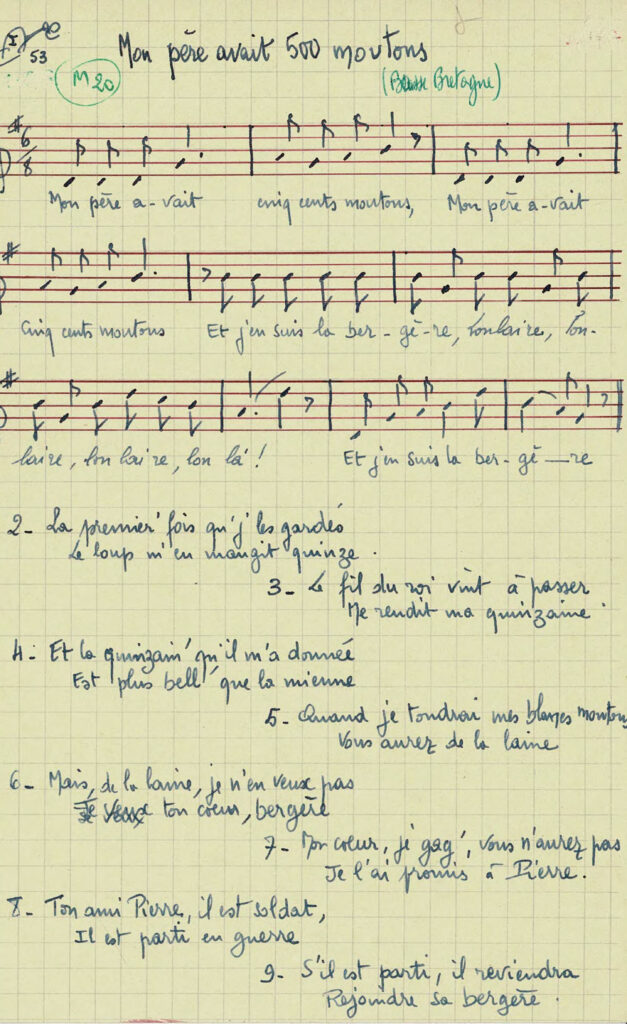 I
53
Mon père avait 500 moutons
M20
(Basse Bretagne)
6
8
Mon père a-vait cinq cents moutons, Mon père a-vait
Cinq cents moutons Et j'en suis la ber-gè-re, lonlaire, lon-
laire, lon laire, lon là! Et j'en suis la ber-gè-re
2- La premier' fois qu'j' les gardés
Le loup m'en mangit quinze.
3- Le fil du roi vint à passer
Me rendit ma quinzaine.
4- Et la quinzain' qu'il m'a donnée
Est plus bell' que la mienne
5- Quand je tondrai mes blancs moutons
Vous aurez de la laine
6- Mais, de la laine, je n'en veux pas
Je veux ton cœur, bergère
7- Mon cœur, je gag', vous n'aurez pas
Je l'ai promis à Pierre.
8- Ton ami Pierre, il est soldat,
Il est parti en guerre
9- S'il est parti, il reviendra
Rejoindre sa bergère.